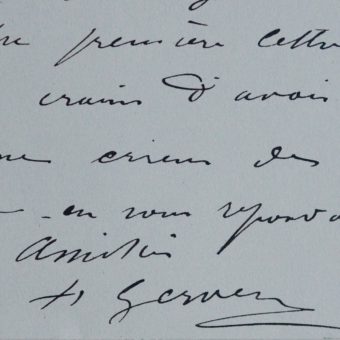 première lettre
crains d'avoir
erreur des
en vous répond
Amitiés
H Gervex